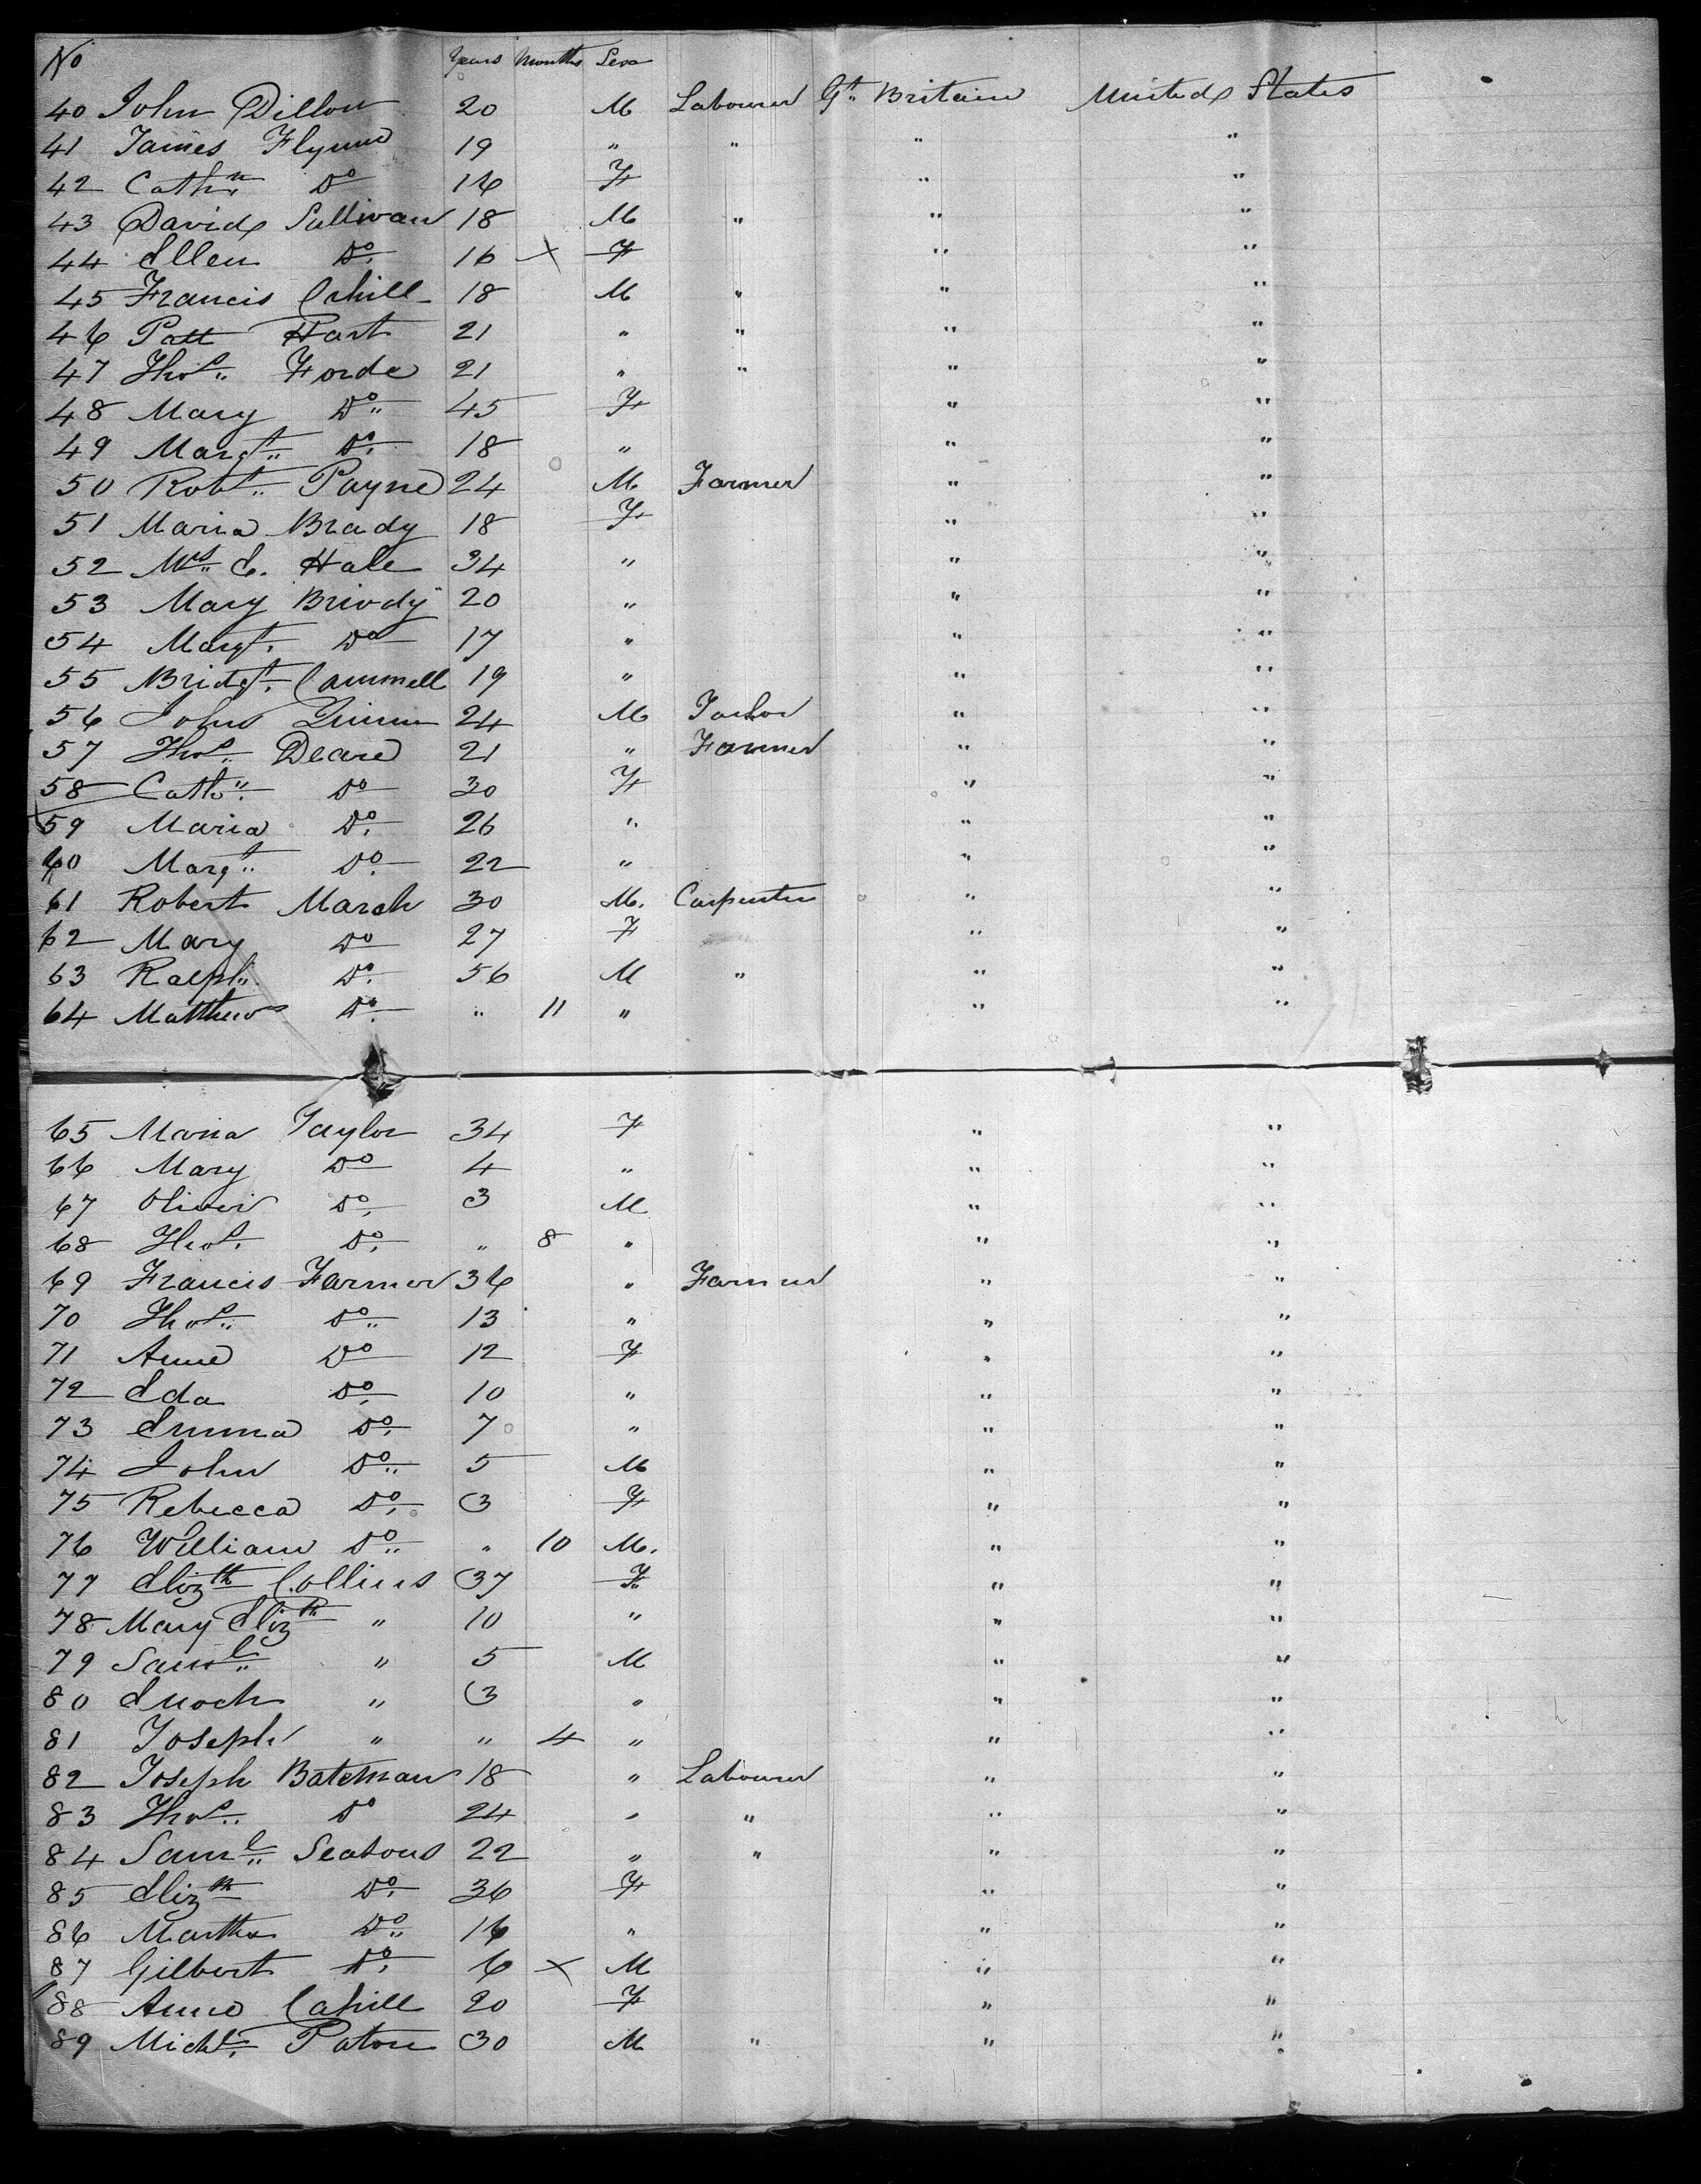 No Years Months Sex
40 John Dillon 20 M Labourer Gt. Britain United States
41 James Flynn 19 " " " "
42 Cathn. Do 16 F " "
43 David Sullivan 18 M " " "
44 Ellen Do. 16 X F " "
45 Francis Cahill 18 M " " "
46 Patt Hart 21 " " " "
47 Thos. Forde 21 " " " "
48 Mary Do. 45 F " "
49 Margt. Do. 18 " " "
50 Robt. Payne 24 M Farmer " "
51 Maria Brady 18 F " "
52 Mrs. E. Hale 34 " " "
53 Mary Briody 20 " " "
54 Margt. Do 17 " " "
55 Bridgt. Cammell 19 " " "
56 John Quinn 24 M Tailor " "
57 Thos. Deare 21 " Farmer " "
58 Cathn. Do 30 F " "
59 Maria Do. 26 " " "
60 Margt. Do. 22 " " "
61 Robert March 30 M. Carpenter " "
62 Mary Do 27 F " "
63 Ralph. Do. 56 M " " "
64 Matthew Do. " 11 " " "
65 Maria Taylor 34 F " "
66 Mary Do 4 " " "
67 Oliver Do. 3 M " "
68 Thos. Do. " 8 " " "
69 Francis Farmer 36 " Farmer " "
70 Thos. Do. 13 " " "
71 Anne Do 12 F " "
72 Eda Do. 10 " " "
73 Emma Do. 7 " " "
74 John Do. 5 M " "
75 Rebecca Do. 3 F " "
76 William Do. " 10 M. " "
77 Elizth Collins 37 F " "
78 Mary Elizth " 10 " " "
79 Saml. " 5 M " "
80 Enoch " 3 " " "
81 Joseph " " 4 " " "
82 Joseph Bateman 18 " Labourer " "
83 Thos. Do 24 " " " "
84 Saml. Seatons 22 " " " "
85 Elizth Do. 36 F " "
86 Martha Do. 16 " " "
87 Gilbert Do. 6 X M " "
88 Anne Cahill 20 F " "
89 Michl. Paton 30 M " " "